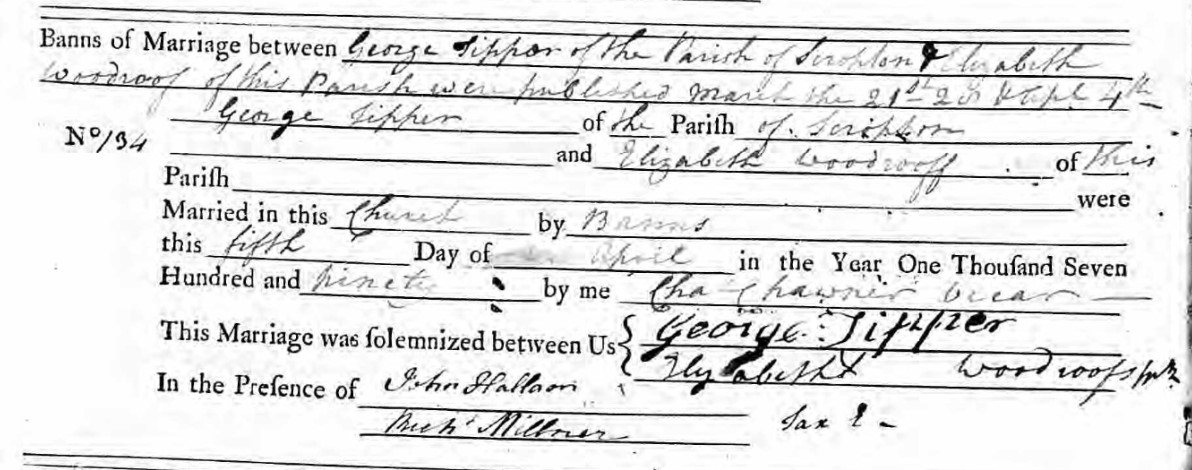 Banns of Marriage between George Tipper of the Parish of Scropton & Elizabeth
Woodroof of this Parish were published March the 21st 28 & Apl 4th
George Tipper of the Pariſh of Scropton
No 134 and Elizabeth Woodrooff of this
Pariſh were
Married in this Church by Banns
this fifth Day of April in the Year One Thouſand Seven
Hundred and Ninety by me Cha Chawner Vicar
This Marriage was ſolemnized between Us { George Tipper
Elyzabeth Woodroofs
In the Preſence of John Hallam
Richd Millner Tax